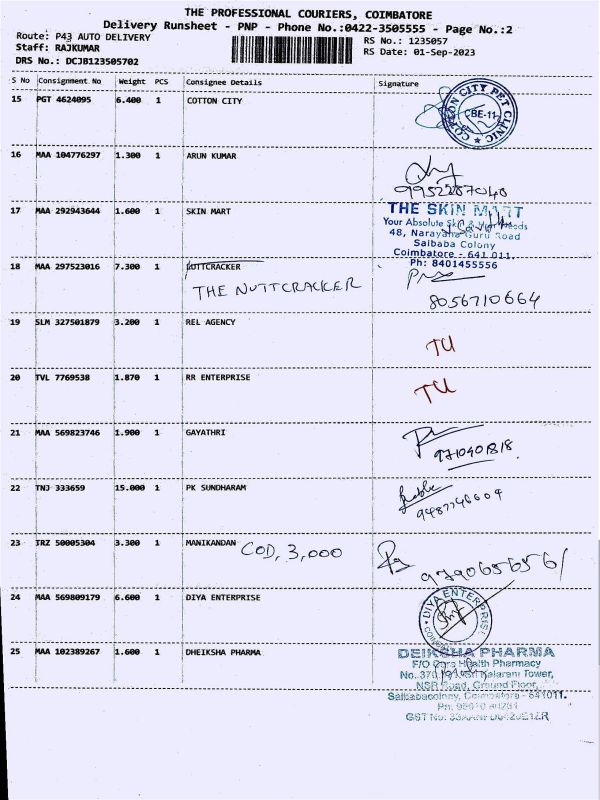 THE PROFESSIONAL COURIERS, COIMBATORE
Delivery Runsheet - PNP - Phone No.:0422-3505555 - Page No.:2
Route: P43 AUTO DELIVERY
RS No.: 1235057
Staff: RAJKUMAR
RS Date: 01-Sep-2023
DRS No.: DCJB123505702
S No Consignment No Weight PCS Consignee Details Signature
15 PGT 4624095 6.400 1 COTTON CITY
COTTON CITY PET CLINIC
CBE-11
16 MAA 104776297 1.300 1 ARUN KUMAR
17 MAA 292943644 1.600 1 SKIN MART
THE SKIN MART
Your Absolute Skin & Hair Needs
48, Narayana Guru Road
Saibaba Colony
Coimbatore - 641 011.
Ph: 8401455556
18 MAA 297523016 7.300 1 NUTTCRACKER
THE NUTTCRACKER
8056710664
19 SLM 327501879 3.200 1 REL AGENCY
TU
20 TVL 7769538 1.870 1 RR ENTERPRISE
TU
21 MAA 569823746 1.900 1 GAYATHRI
22 TNJ 333659 15.000 1 PK SUNDHARAM
23 TRZ 50005304 3.300 1 MANIKANDAN COD, 3,000
9790656561
24 MAA 569809179 6.600 1 DIYA ENTERPRISE
DIYA ENTERPRISE
25 MAA 102389267 1.600 1 DHEIKSHA PHARMA
DEIKSHA PHARMA
F/O Care Health Pharmacy
Kalarani Tower,
NSR Road, Ground Floor,
Saibabacolony, Coimbatore - 641011.